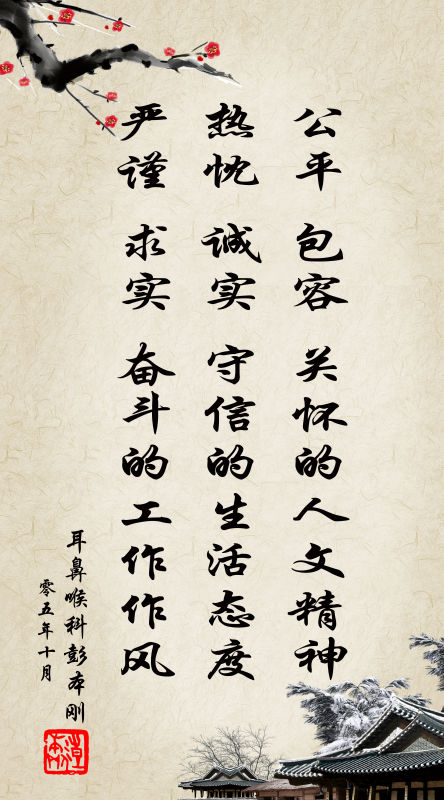 公平 包容 关怀的人文精神
热忱 诚实 守信的生活态度
严谨 求实 奋斗的工作作风
耳鼻喉科彭本刚
零五年十月